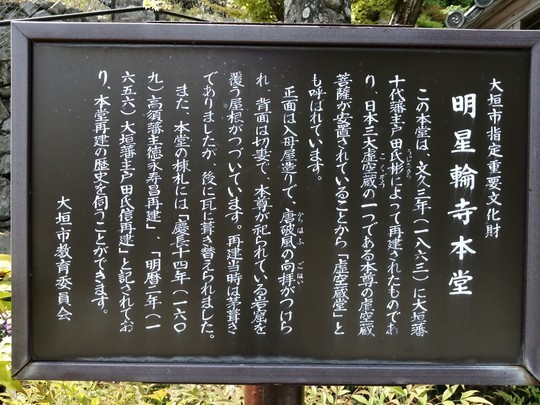 大垣市指定重要文化財
明星輪寺本堂
この本堂は、文久三年(一八六三)に大垣藩
十代藩主戸田氏彬によって再建されたものであ
り、日本三大虚空蔵の一つである本尊の虚空蔵
菩薩が安置されていることから「虚空蔵堂」と
も呼ばれています。
正面は入母屋造りで、唐破風の向拝がつけら
れ、背面は切妻で、本尊が祀られている岩窟を
覆う屋根がつづいています。再建当時は茅葺き
でありましたが、後に瓦に葺き替えられました。
また、本堂の棟札には「慶長十四年(一六〇
九)高須藩主徳永寿昌再建」、「明暦二年(一
六五六)大垣藩主戸田氏信再建」と記されてお
り、本堂再建の歴史を伺うことができます。
大垣市教育委員会